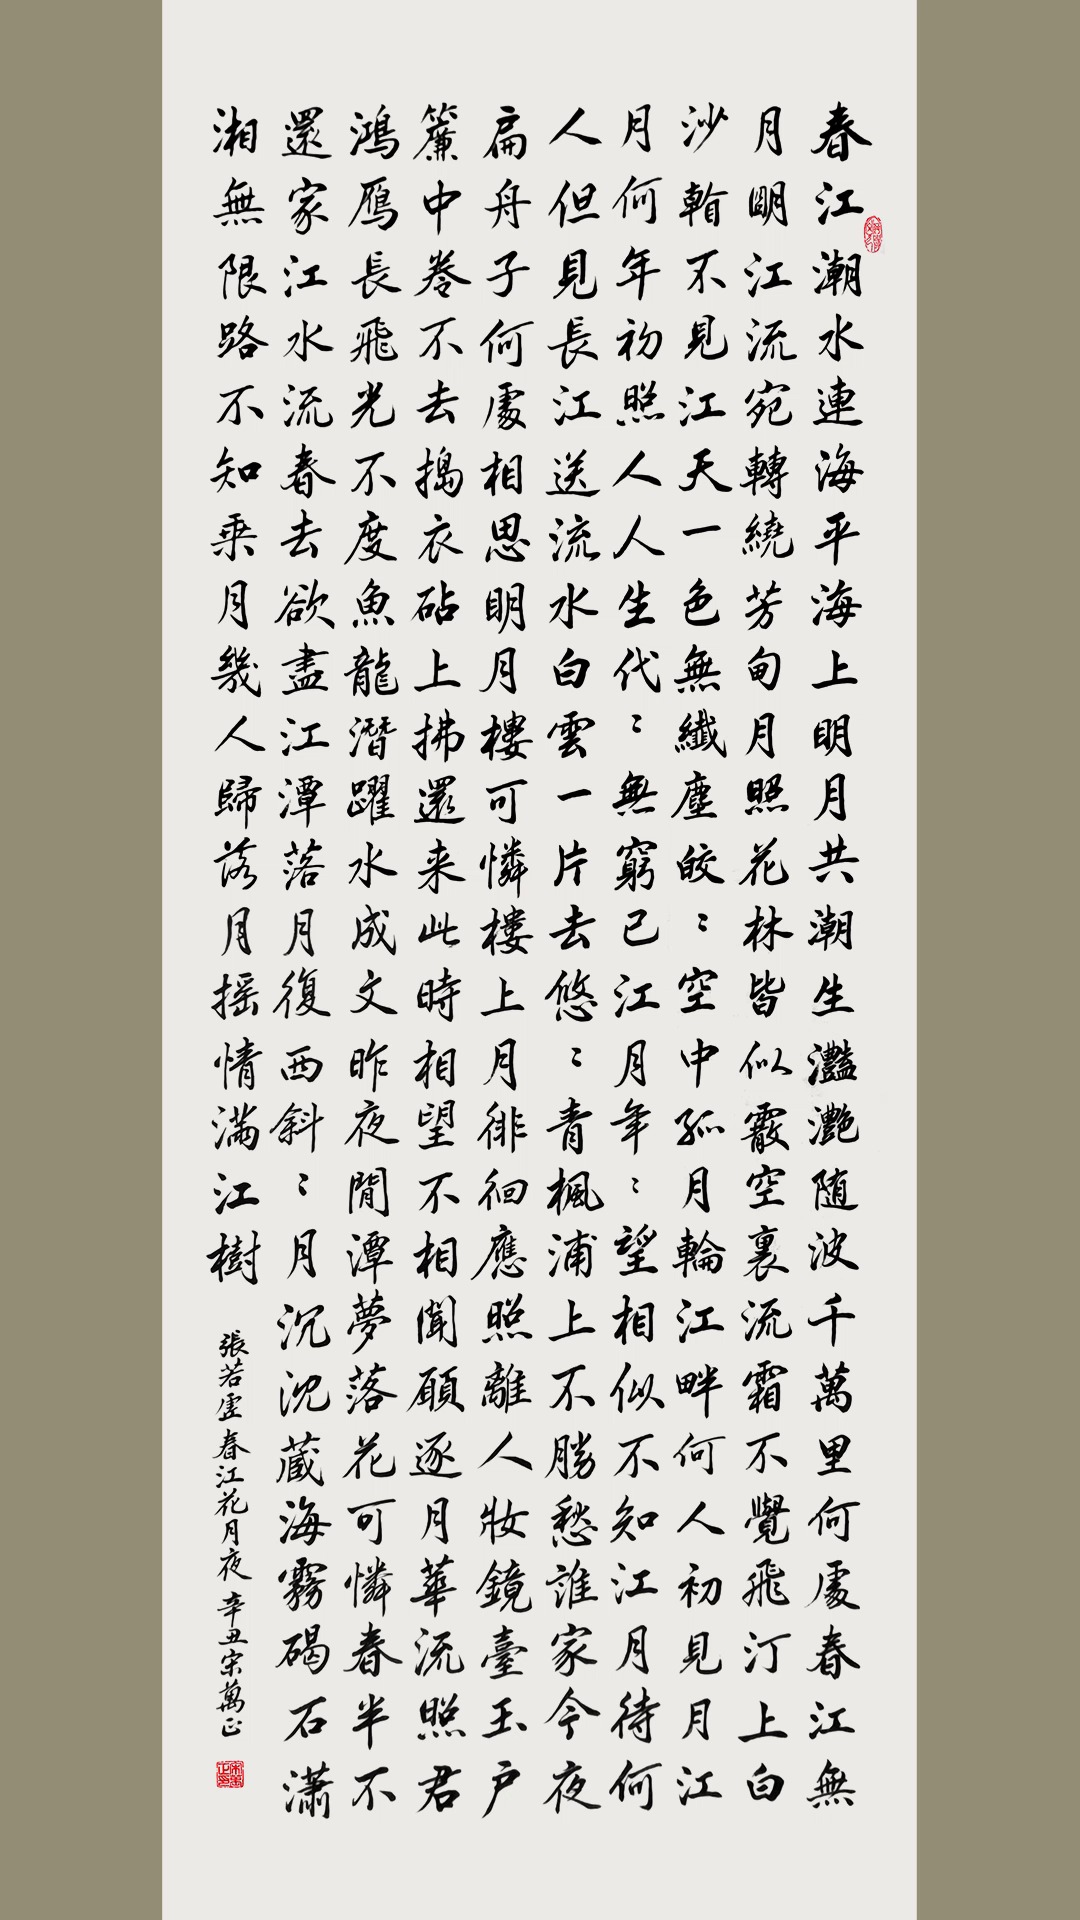 春江潮水連海平海上明月共潮生灩灔随波千萬里何處春江無
月明江流宛轉繞芳甸月照花林皆似霰空裏流霜不覺飛汀上白
沙看不見江天一色無纖塵皎〻空中孤月輪江畔何人初見月江
月何年初照人人生代〻無窮已江月年〻望相似不知江月待何
人但見長江送流水白雲一片去悠〻青楓浦上不勝愁誰家今夜
扁舟子何處相思明月樓可憐樓上月徘徊應照離人妝鏡臺玉户
簾中卷不去搗衣砧上拂還来此時相望不相聞願逐月華流照君
鴻雁長飛光不度魚龍潛躍水成文昨夜閒潭夢落花可憐春半不
還家江水流春去欲盡江潭落月復西斜〻月沉沈藏海霧碣石潇
湘無限路不知乘月幾人歸落月摇情滿江樹
張若虛春江花月夜 辛丑宋萬正